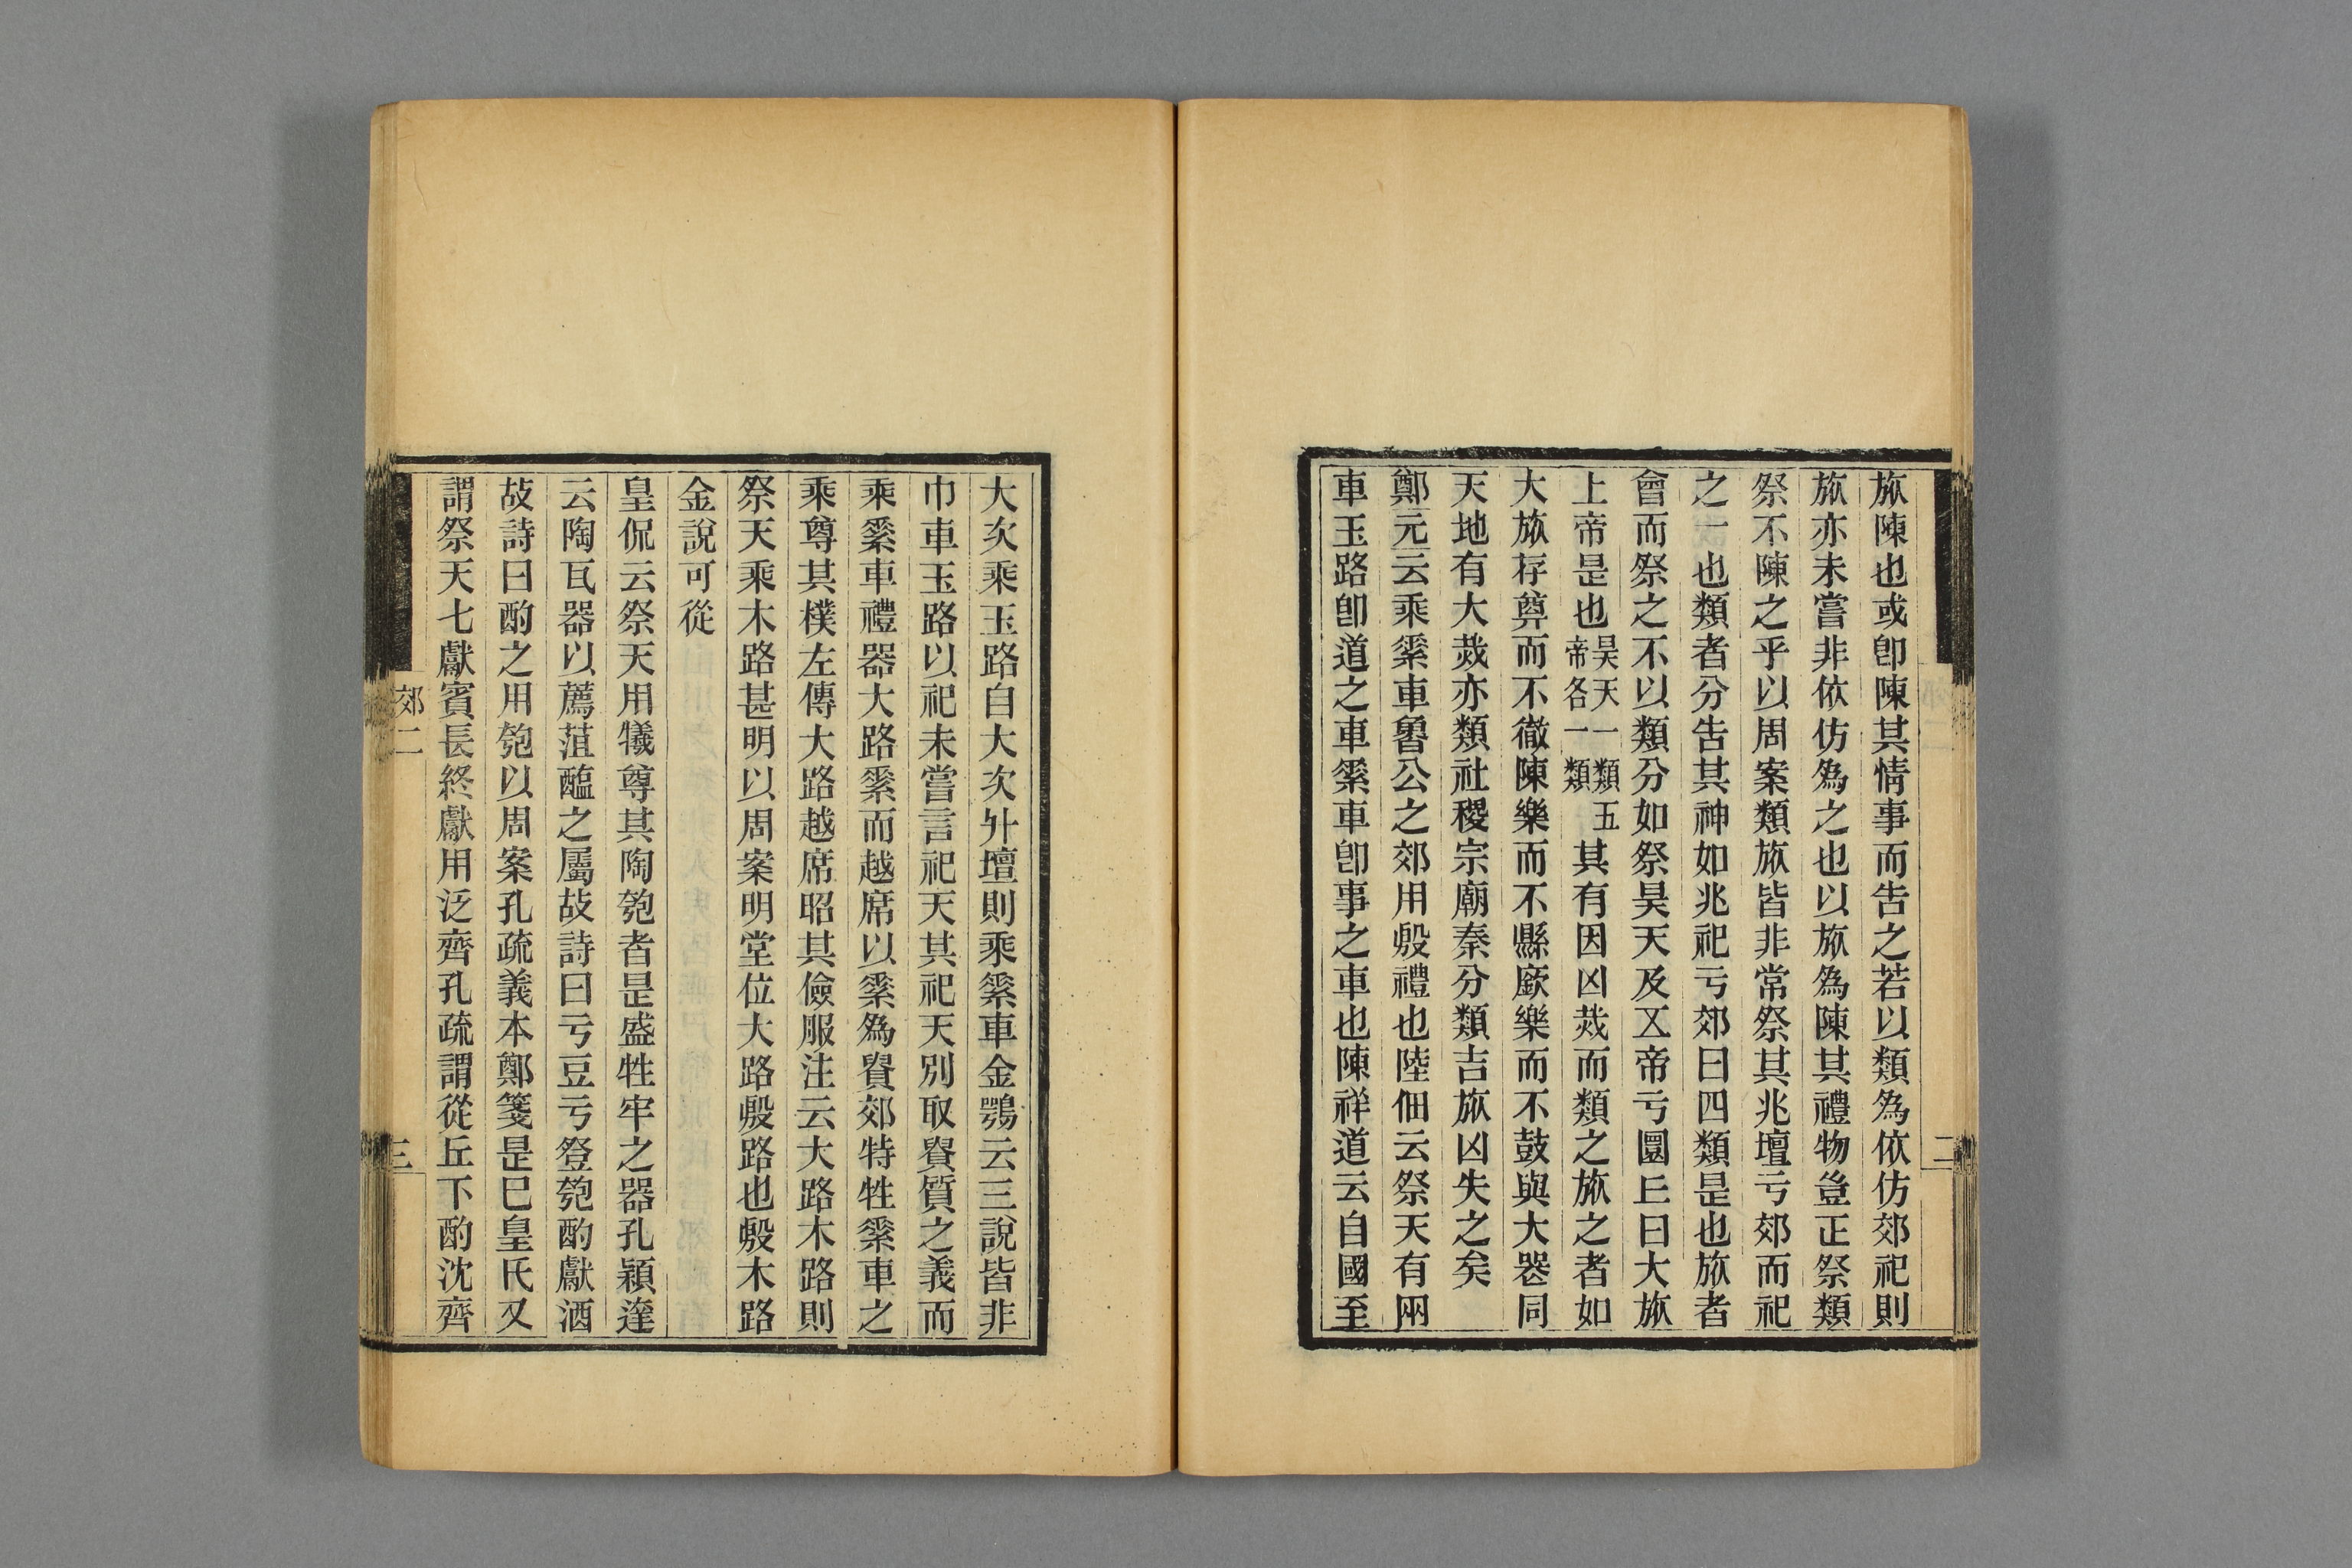 旅陳也或卽陳其情事而告之若以類為依仿郊祀則
旅亦未嘗非依仿為之也以旅為陳其禮物豈正祭類
祭不陳之乎以周案類旅皆非常祭其兆壇亏郊而祀
之一也類者分告其神如兆祀亏郊曰四類是也旅者
會而祭之不以類分如祭昊天及五帝亏圜丘曰大旅
上帝是也昊天一類五帝各一類其有因凶烖而類之旅之者如
大旅存奠而不徹陳樂而不縣廞樂而不鼓與大喪同
天地有大烖亦類社稷宗廟秦分類吉旅凶失之矣
鄭元云乘素車魯公之郊用殷禮也陸佃云祭天有兩
車玉路卽道之車素車卽事之車也陳祥道云自國至
大次乘玉路自大次升壇則乘素車金鶚云三說皆非
巾車玉路以祀未嘗言祀天其祀天別取貴質之義而
乘素車禮器大路素而越席以素為貴郊特牲素車之
乘尊其樸左傳大路越席昭其儉服注云大路木路則
祭天乘木路甚明以周案明堂位大路殷路也殷木路
金說可從
皇侃云祭天用犧尊其陶匏者是盛牲牢之器孔穎達
云陶瓦器以薦菹醢之屬故詩曰亏豆亏豋匏酌獻酒
故詩曰酌之用匏以周案孔疏義本鄭箋是巳皇氏又
謂祭天七獻賓長終獻用泛齊孔疏謂從丘下酌沈齊
郊二
三
二